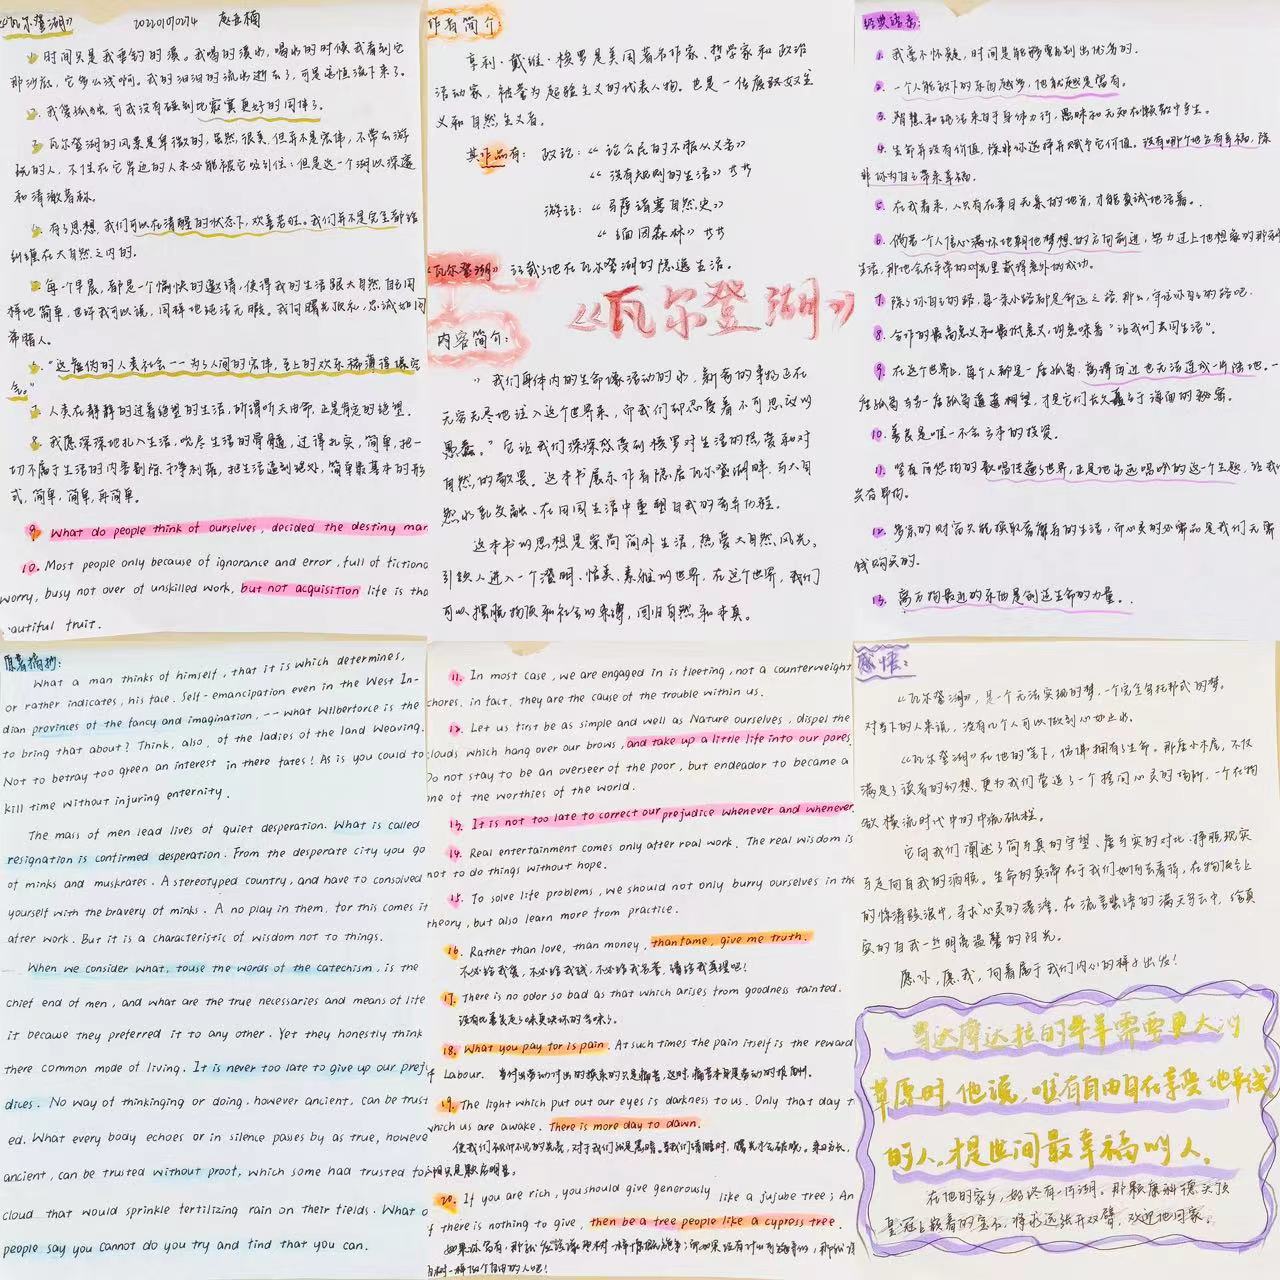 《瓦尔登湖》
时间只是我垂钓的溪。我喝的溪水,喝水的时候我看到它
那沙底,它多么浅啊。我的汩汩的流水逝去了,可是这恒流下来了。
2. 我爱孤独,可我没有碰到比寂寞更好的同伴了。
3. 瓦尔登湖的风景是卑微的,虽然很美,但并不是宏伟,不常去游
玩的人,不住在它岸边的人未必能被它吸引住:但是这一个湖以深邃
和清澈著称。
4. 有了思想,我们可以在清醒的状态下,欢喜若狂。我们并不是完全都给
纠缠在大自然之内的。
每一个早晨,都是一个愉快的邀请,使得我的生活跟大自然自己同
样地简单,也许我可以说,同样地纯洁无瑕。我向曙光顶礼,忠诚如同
希腊人。
"这虚伪的人类社会——为了人间的宏伟,至上的欢乐稀薄得像空
气。"
人类在静静的过着绝望的生活,所谓听天由命,正是肯定的绝望。
8. 我愿深深地扎入生活,吮尽生活的骨髓,过得扎实,简单,把一
切不属于生活的内容剔除干净利落,把生活逼到绝处,简单最基本的形
式,简单,简单,再简单。
9. What do people think of ourselves, decided the destiny man
10. Most people only because of ignorance and error, full of fictiona
worry, busy not over of unskilled work, but not acquisition life is the
autiful fruit.
作者简介:
亨利·戴维·梭罗是美国著名作家、哲学家和政治
活动家,被誉为超验主义的代表人物。也是一位废奴主
义和自然主义者。
其作品有: 政论:《论公民的不服从义务》
《没有规则的生活》等等
游记:《马萨诸塞自然史》
《缅因森林》等等
《瓦尔登湖》 记载了他在瓦尔登湖的隐逸生活。
《瓦尔登湖》
内容简介:
"我们身体内的生命像活动的水,新奇的事物正在
无穷无尽地注入这个世界来,而我们却忍受着不可思议的
愚蠢。"它让我们深深感受到梭罗对生活的热爱和对
自然的敬畏。这本书展示作者隐居瓦尔登湖畔,与大自
然水乳交融、在田园生活中重塑自我的奇异历程。
这本书的思想是崇尚简朴生活,热爱大自然风光。
引领人进入一个澄明、恬美、素雅的世界,在这个世界,我们
可以摆脱物质和社会的束缚,回归自然和本真。
经典语录:
1. 我毫不怀疑,时间是能够甄别出优劣的。
2. 一个人能放下的东西越多,他就越是富有。
3. 智慧和纯洁来自于身体力行,愚昧和无知在懒散中产生。
4. 生命并没有价值,除非你选择并赋予它价值。没有哪个地方有幸福,除
非你为自己带来幸福。
5. 在我看来,人只有在举目无亲的地方,才能真诚地活着。
6. 倘若一个人信心满怀地朝他梦想的方向前进,努力过上他想象的那种
生活,那他会在平常的时光里获得意外的成功。
7. 除了你自己的路,每一条小路都是命运之路,那么,守住你自己的路吧。
8. 合作的最高意义和最低意义,均意味着"让我们共同生活"。
9. 在这个世界上,每个人都是一座孤岛,离得再近也无法连成一片陆地。一
座孤岛与另一座孤岛遥遥相望,才是它们长久矗立于海面的秘密。
10. 善良是唯一不会亏本的投资。
12. 多余的财富只能换取奢靡者的生活,而心灵的必需品是我们无需
钱购买的。
13. 离万物最近的东西是创造生命的力量。
原著摘抄:
What a man thinks of himself, that it is which determines,
or rather indicates, his fate. Self-emancipation even in the West In-
dian provinces of the fancy and imagination, -- what Wilberforce is the
to bring that about? Think, also, of the ladies of the land Weaving.
Not to betray too green an interest in there fates! As is you could to
kill time without injuring enternity.
The mass of men lead lives of quiet desperation. What is called
resignation is confirmed desperation. From the desperate city you go
of minks and muskrates. A stereotyped country, and have to consolved
yourself with the bravery of minks. A no play in them, for this comes it
after work. But it is a characteristic of wisdom not to things.
When we consider what, touse the words of the catechism, is the
chief end of men, and what are the true necessaries and means of life
it because they preferred it to any other. Yet they honestly think
there common mode of living. It is never too late to give up our prej
dices. No way of thinkinging or doing, however ancient, can be trust
ed. What every body echoes or in silence passes by as true, howeve
ancient, can be trusted without proof, which some had trusted fo
cloud that would sprinkle fertilizing rain on their fields. What o
people say you cannot do you try and find that you can.
11. In most case, we are engaged in is fleeting, not a counterweight
chores, in fact, they are the cause of the trouble within us.
12. Let us first be as simple and well as Nature ourselves, dispel the
clouds which hang over our brows, and take up a little life into our pores.
Do not stay to be an overseer of the poor, but endeador to became a
one of the worthies of the world.
13. It is not too late to correct our prejudice whenever and whenever
14. Real entertainment comes only after real work. The real wisdom is
not to do things without hope.
15. To solve life problems, we should not only burry ourselves in the
theory, but also learn more from practice.
16. Rather than love, than money, than fame, give me truth.
不必给我爱,不必给我钱,不必给我名誉,请给我真理吧!
17. There is no odor so bad as that which arises from goodness tainted.
没有比善良走了味更坏的气味了。
18. What you pay for is pain. At such times the pain itself is the reward
f Labour.
19. The light which put out our eyes is darkness to us. Only that day t
which us are awake. There is more day to dawn.
20. If you are rich, you should give generously like a jujube tree; An
f there is nothing to give, then be a tree people like a cypress tree.
感悟:
《瓦尔登湖》,是一个无法实现的梦,一个完全乌托邦式的梦。
对当下的人来说,没有几个人可以做到心如止水。
《瓦尔登湖》在他的笔下,仿佛拥有了生命。那座小木屋,不仅
满足了读者的幻想,更为我们营造了一个拷问心灵的场所,一个在物
欲横流时代中的中流砥柱。
它向我们阐述了简与真的守望、虚与实的对比、挣脱现实
与走向自我的洒脱。生命的真谛在于我们如何去看待,在物质至上
的惊涛骇浪中,寻求心灵的港湾。在流言蜚语的满天乌云中,给真
实的自我一丝明亮温馨的阳光。
愿你,愿我,向着属于我们内心的样子出发!
当达摩达拉的牛羊需要更大的
草原时,他说,唯有自由自在享受地平线
的人,才是世间最幸福的人。
在他的家乡,始终有一片湖。那颗康科德头顶
皇冠上嵌着的宝石,将永远张开双臂,欢迎他回家。